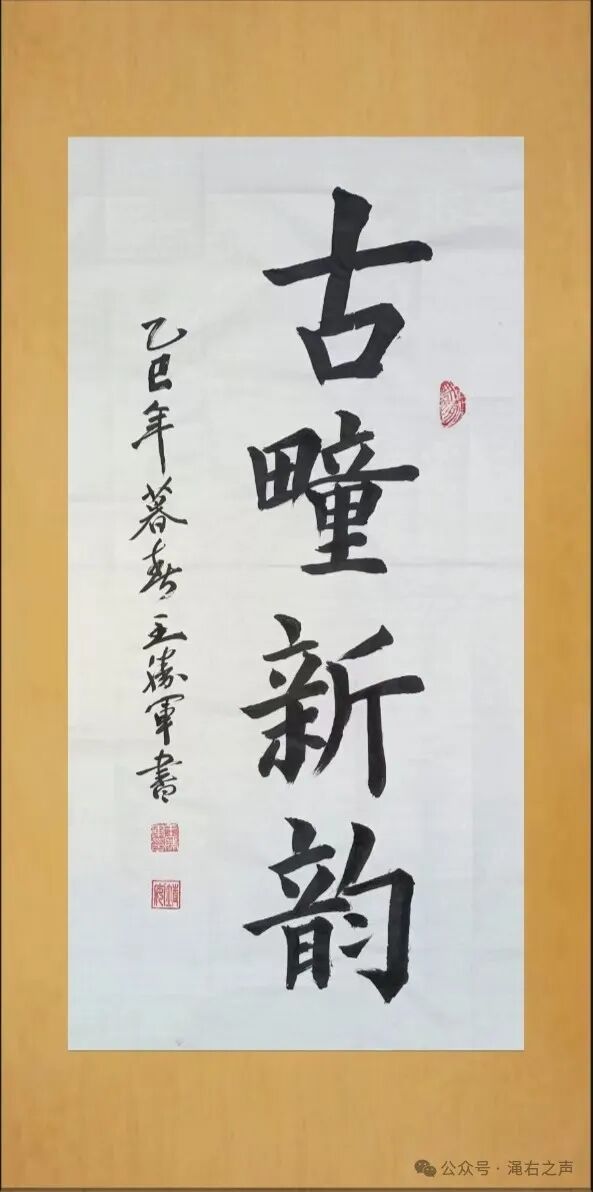 古疃新韵
乙巳年暮春王胜军书
公众号·渑右之声